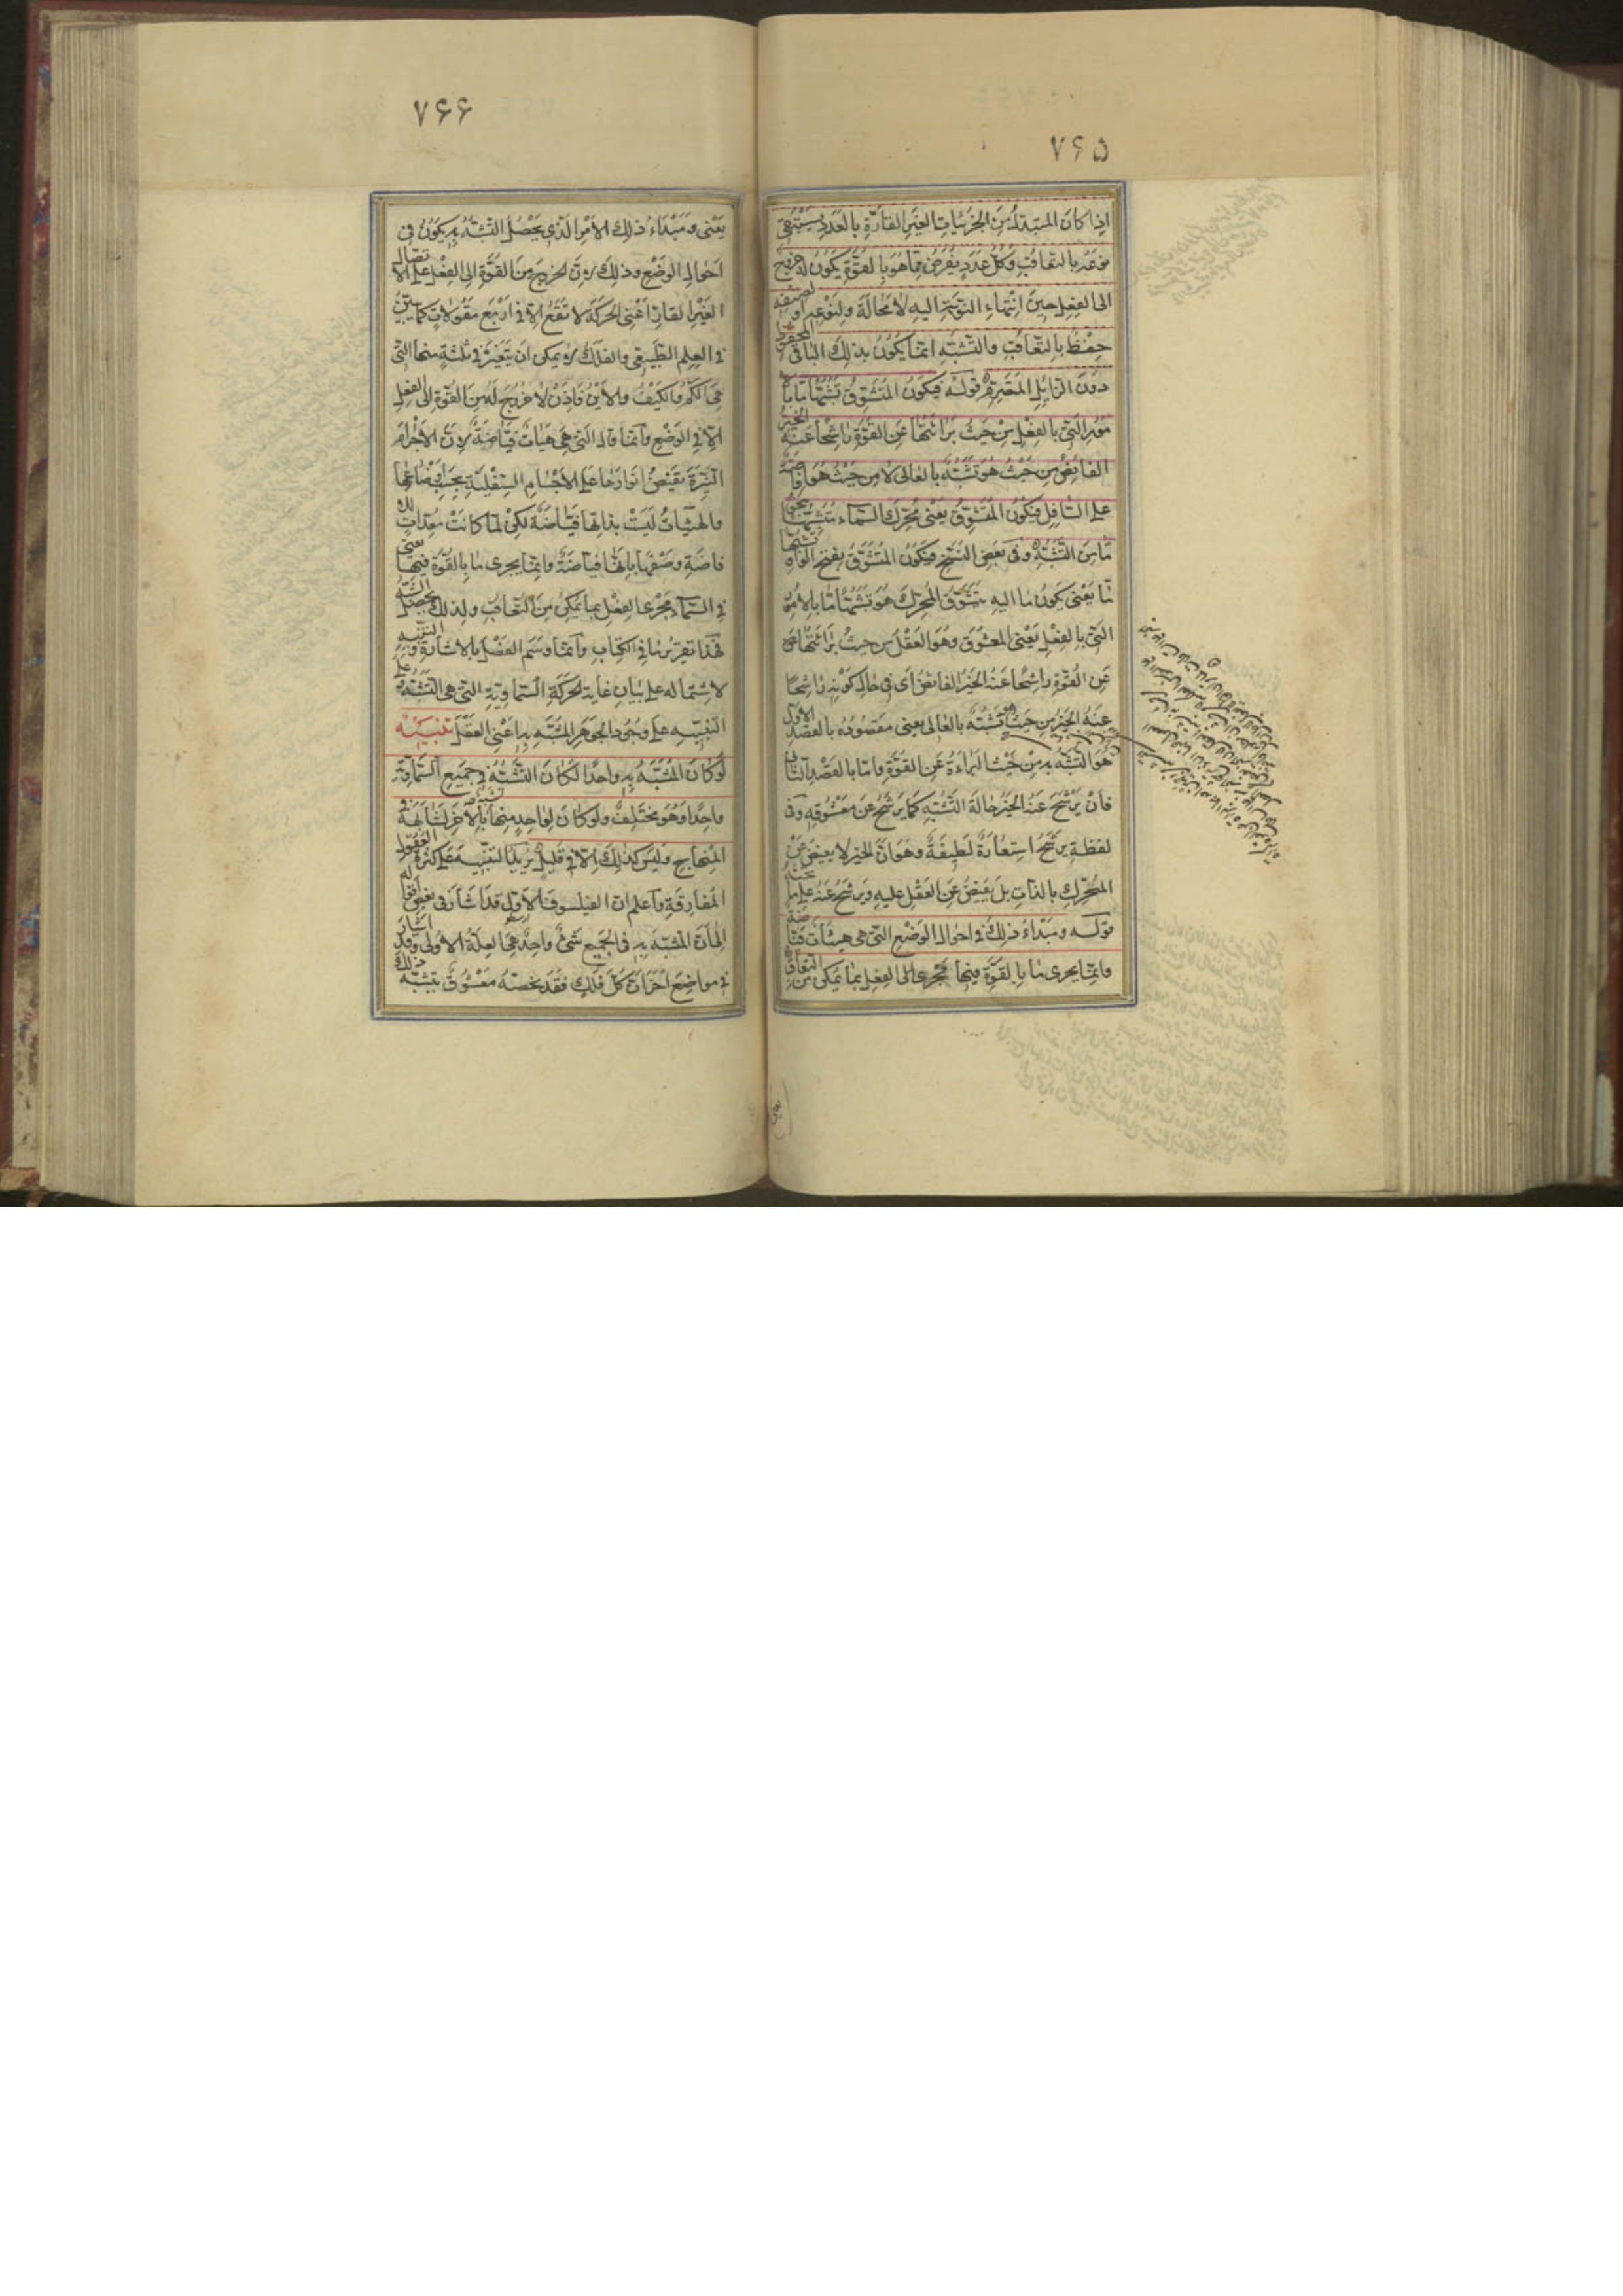 ۷۶۵
اذا كان المتبدل من الجزئيات الغير القارة بالعدد يستبقى
نوعه بالتعاقب وكل عدد يفرض مما هو بالقوة يكون له خروج
الى الفعل حين انتهاء النوبة اليه لا محالة ولنوعه او لصنفه
حفظ بالتعاقب والتشبه انما يكون بذلك الباقى المحفوظ
دون الزايل المتصرم قوله فيكون المتشوق تشبها ما بالا
مور التى بالفعل من حيث براءتها عن القوة راشحا عنه الخير
الفايض من حيث هو تشبه بالعالى لا من حيث هو افاضة
على السافل فيكون المتشوق يعنى محرك السماء متشبها نحوا
ما من التشبه وفى بعض النسخ فيكون المتشوق بفتح الواو تشبها
ما يعنى يكون ما اليه يتشوق المحرك هو تشبها ما بالامور
التى بالفعل يعنى المعشوق وهو العقل من حيث براءتها
عن القوة راشحا عنه الخير الفايض اى فى حال كونه راشحا
عنه الخير من حيث هو تشبه بالعالى يعنى مقصوده بالقصد الاول
هو التشبه به من حيث البراءة عن القوة واما بالقصد الثانى
فان يرشح عنه الخير حالة التشبه كما يرشح عن معشوقه وفى
لفظة يرشح استعارة لطيفة وهو ان الخير لا يفيض عن
المحرك بالذات بل يفيض عن العقل عليه ويرشح عنه على ما تحته
قوله ومبداء ذلك فى احوال الوضع التى هى هيئات فياضة
وانما يجرى ما بالقوة فيها مجرى الى الفعل بما يمكن من التعاقب
۷۶۶
يعنى ومبداء ذلك الامر الذى يحصل التشبه به يكون فى
احوال الوضع وذلك لان الخروج من القوة الى الفعل على الاتصال
الغير القار اعنى الحركة لا تقع الا فى اربع مقولات كما تبين
فى العلم الطبيعى والفلك لا يمكن ان يتغير فى ثلثة منها التى
هى الكم والكيف والاين فاذن لا خروج له من القوة الى الفعل
الا فى الوضع وانما قال التى هى هيات فياضة لان الاجرام
النيرة تفيض انوارها على الاجسام السفلية بحسب اوضاعها
والهيئات ليست بذاتها فياضة لكن لما كانت معدات للا
فاضة وصفها بانها فياضة وانما يجرى ما بالقوة فيها يعنى
فى السماء مجرى الفعل بما يمكن من التعاقب ولذلك يحصل التشبه
فهذا تقرير ما فى الكتاب وانما وسم الفصل بالاشارة والتنبيه
لاشتماله على بيان غاية الحركة السماوية التى هى التشبه وعلى
التنبيه على وجود الجوهر المتشبه به اعنى العقل تنبيه
لو كان المتشبه به واحدا لكان التشبه فى جميع السماوية
واحدا وهو مختلف ولو كان لواحد منها تشبه بالاخر لشابهه فى
المنهاج وليس كذلك الا فى قليل يريد التنبيه على كثرة العقول
المفارقة واعلم ان الفيلسوف الاول قد اشار فى بعض اقواله
الى ان المتشبه به فى الجميع شىء واحد هى العلة الاولى وقد اشار
فى مواضع اخر ان لكل فلك فقد يخصه معشوق يتشبه ذلك